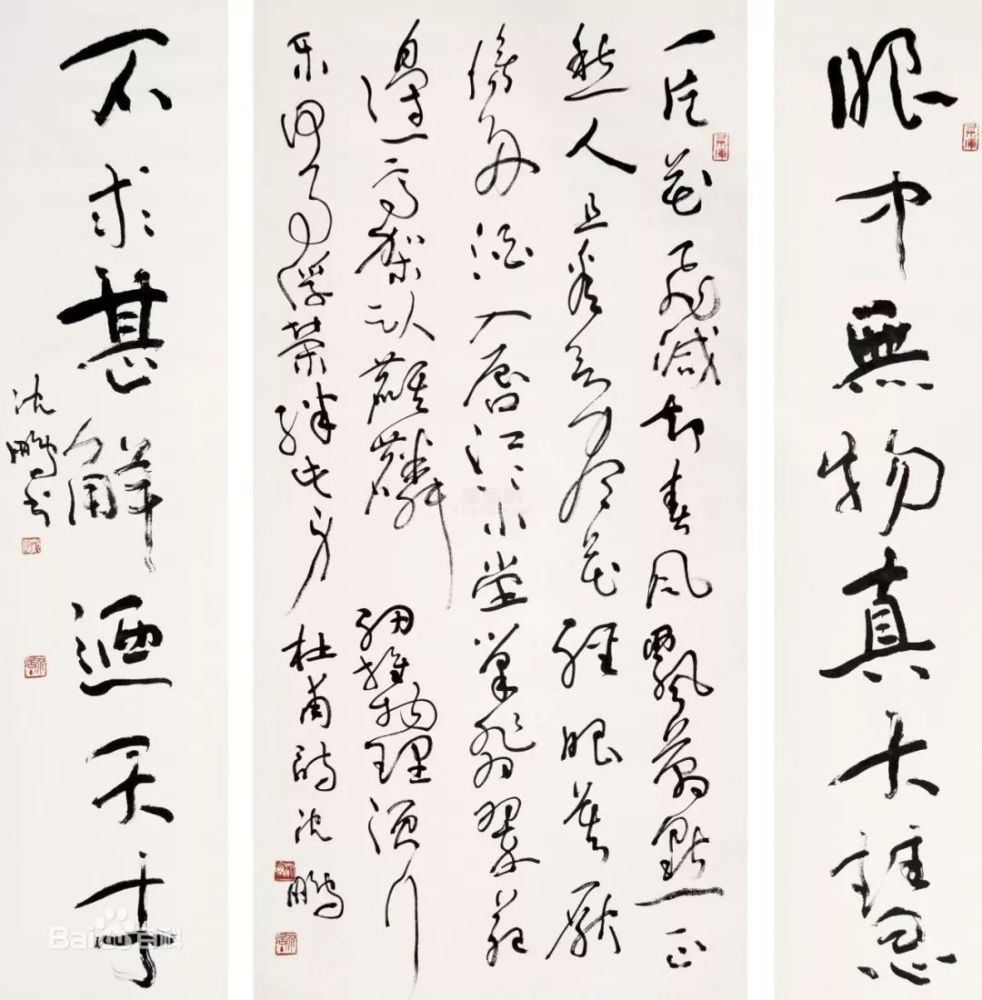 眼中無物真大
一片花飛減却春風飄萬點正
愁人且看欲盡花經眼莫厭
傷多酒入唇江上小堂巢翡翠苑
邊高冢卧麒麟細推物理須行
乐何用浮荣絆此身 杜甫詩沈鵬
不求甚解迺天
沈鵬书
Baidu百科